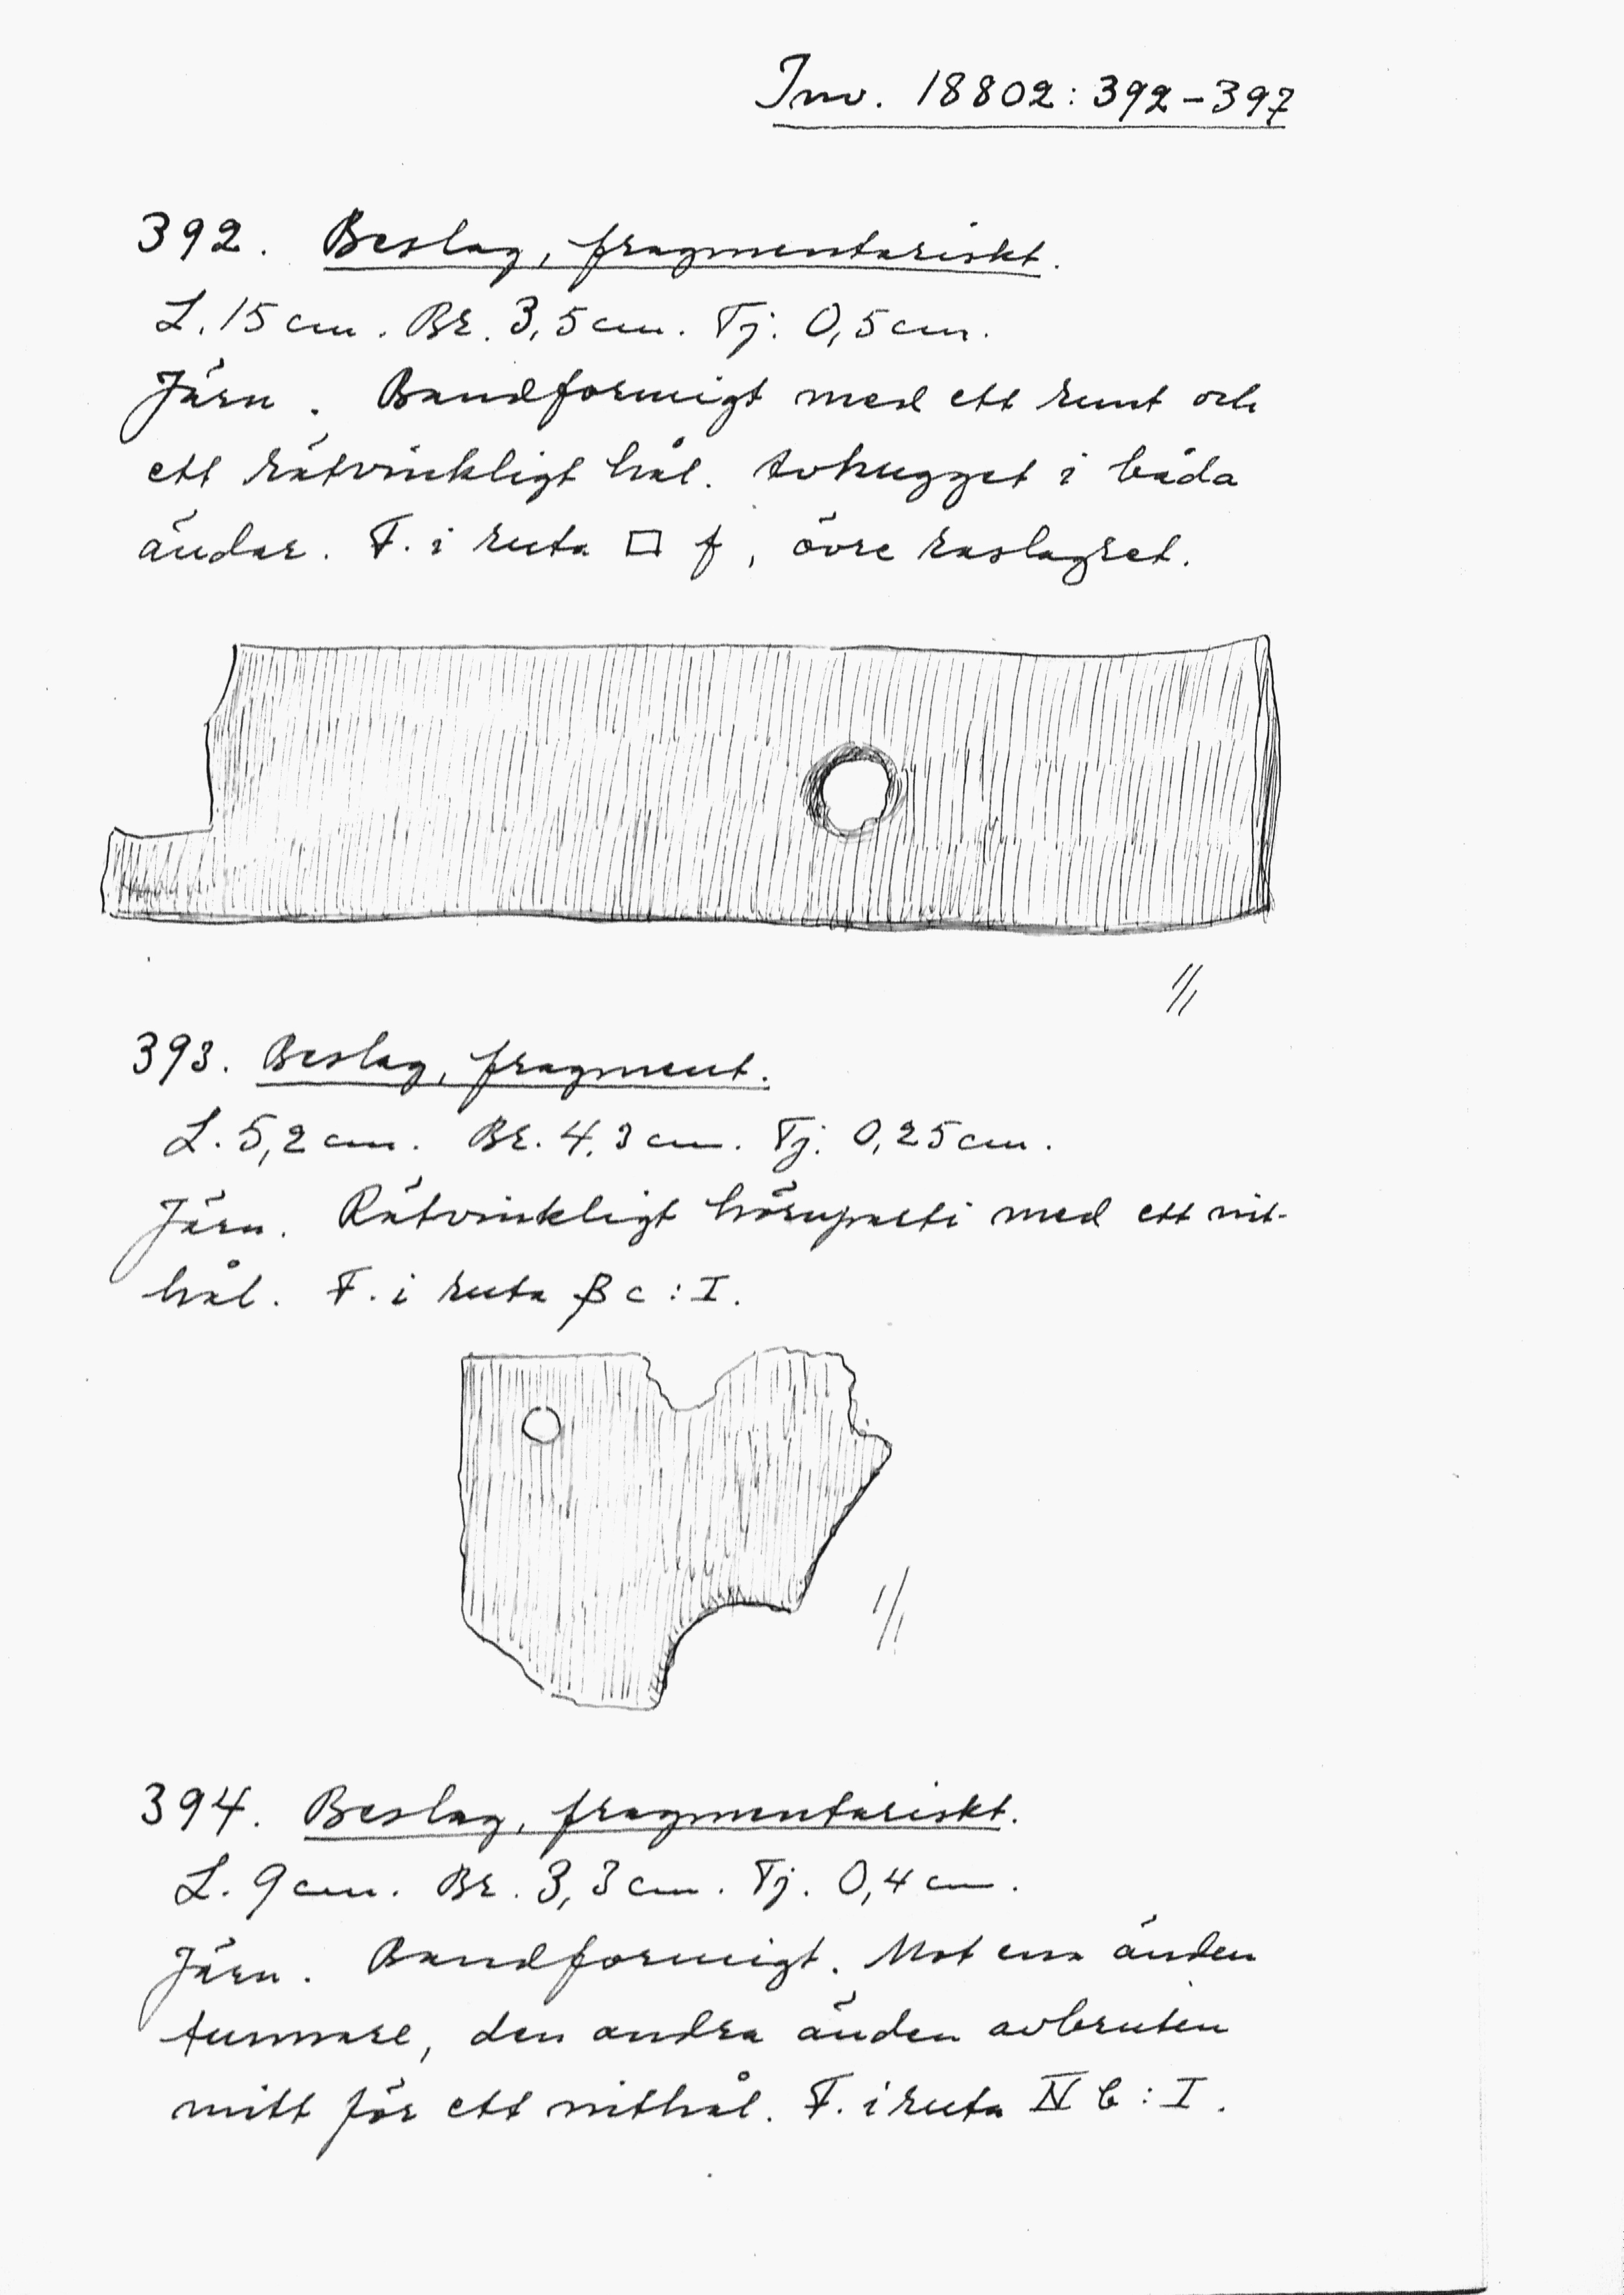 Inv. 18802: 392-397
392. Beslag, fragmentariskt.
L. 15 cm. Br. 3,5 cm. Tj. 0,5 cm.
Järn. Bandformigt med ett runt och
ett rätvinkligt hål. Avhugget i båda
ändar. F. i ruta □ f, övre raslagret.
1/1
393. Beslag, fragment.
L. 5,2 cm. Br. 4,3 cm. Tj. 0,25 cm.
Järn. Rätvinkligt hörnparti med ett nit-
hål. F. i ruta β c : I.
1/1
394. Beslag, fragmentariskt.
L. 9 cm. Br. 3,3 cm. Tj. 0,4 cm.
Järn. Bandformigt. Mot ena änden
tunnare, den andra änden avbruten
mitt för ett nithål. F. i ruta IV b : I.